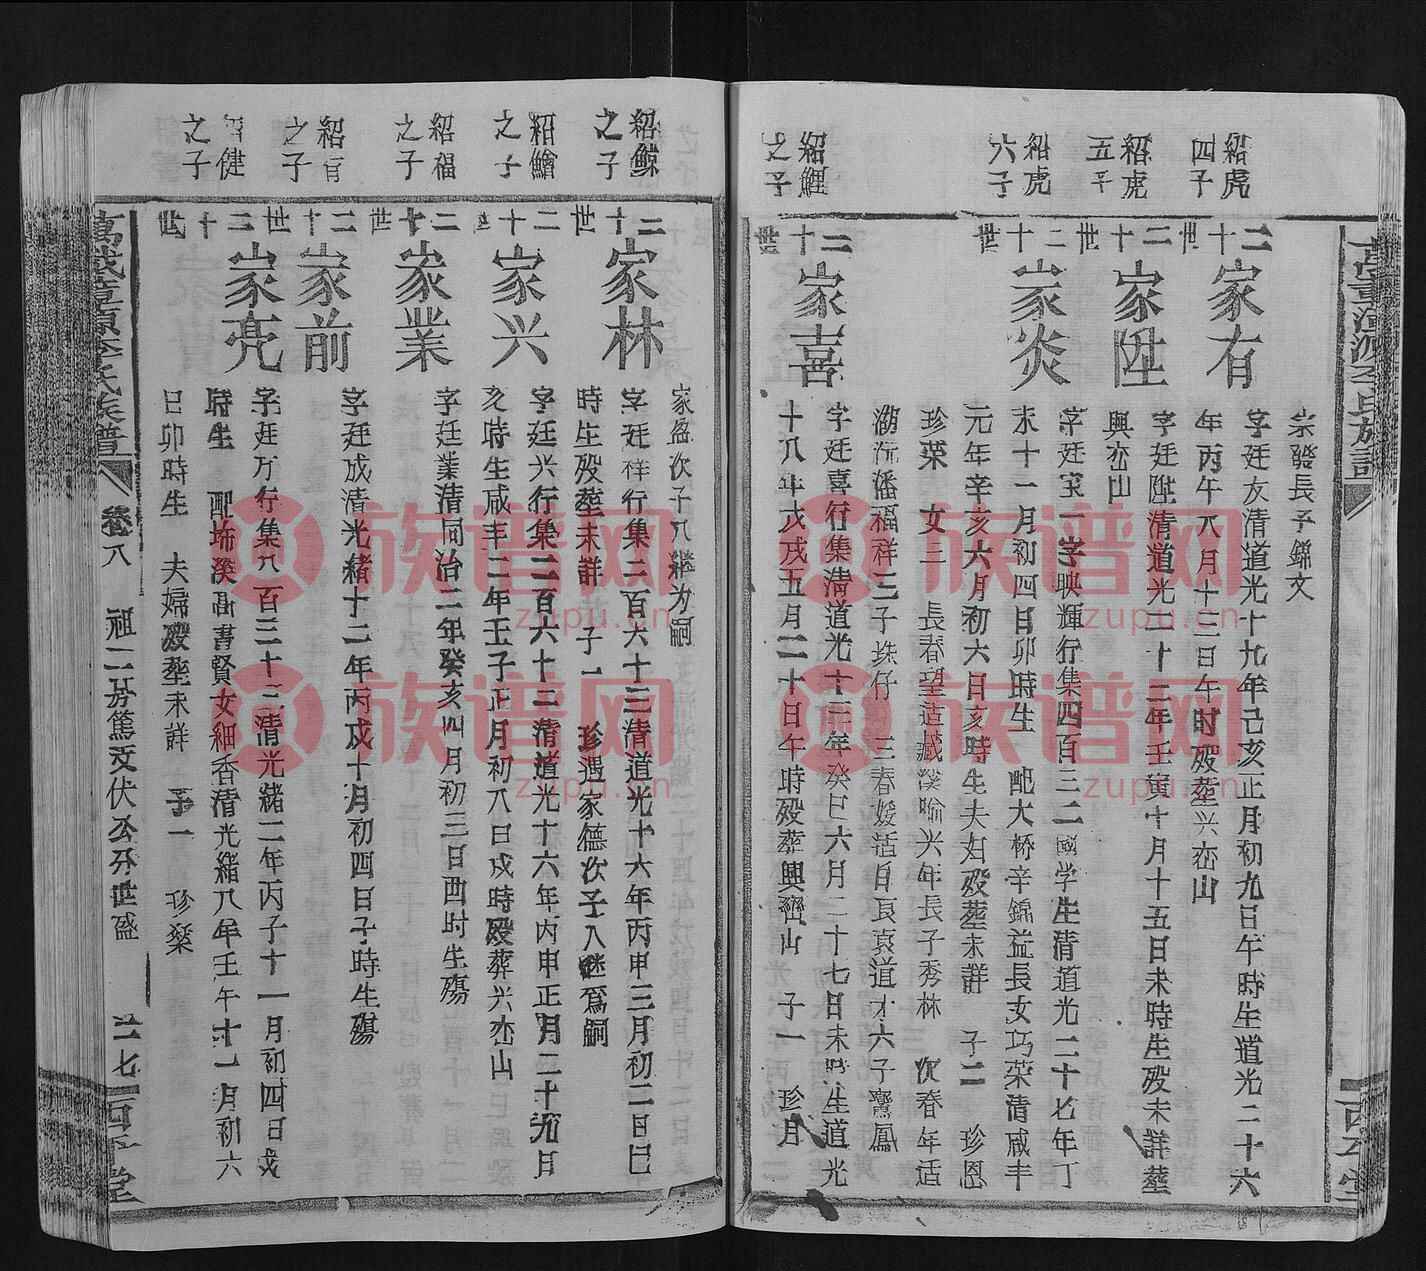 紹虎四子
紹虎五子
紹虎六子
紹鯉之子
崇發長子錦文
二十世
家有
字廷友清道光十九年己亥正月初九日午時生道光二十六
年丙午八月十三日午时殁塟兴峦山
二十世
家陞
字廷陞清道光二十二年壬寅十月十五日未時生殁未詳塟
興峦山
二十世
家炎
字廷宝一字映輝行集四百三二國学生清道光二十七年丁
未十一月初四日卯時生 配大桥辛錦益長女巧荣清咸丰
元年辛亥六月初六日亥時生夫妇殁塟未詳 子二 珍恩
珍荣 女三 長春望造藏溪喻兴年長子秀林 次春年适
潮沅潘福祥三子珠仔 三春媛适自良真道才六子鸞鳳
二十世
家喜
字廷喜行集清道光十三年癸巳六月二十七日未時生道光
十八年戊戌五月二十日午時殁葬興齊山 子一 珍月
紹鯨之子
紹鱠之子
紹福之子
之子
健之子
家盈次子入継为嗣
二十世
家林
字廷祥行集二百六十三清道光十六年丙申三月初二日巳
時生殁塟未詳 子一 珍遇家德次子入继爲嗣
二十世
家兴
字廷兴行集二百六十二清道光十六年丙申正月二十九日
亥時生咸丰二年壬子正月初八日戌時殁葬兴峦山
二十世
家業
字廷業清同治二年癸亥四月初三日酉时生殤
二十世
家前
字廷成清光緒十二年丙戌十月初四日子時生殤
二十世
家亮
字廷万行集八百三十三清光緒二年丙子十一月初四日戌
時生 配埇溪高書賢女細香清光緒八年壬午十一月初六
日卯時生 夫婦殁塟未詳 子一 珍燊
萬載草源李氏族譜
卷八
祖二房篤文伏公分世盛
二七
族谱网
zupu.cn
族谱网
zupu.cn
族谱网
zupu.cn
族谱网
zupu.cn